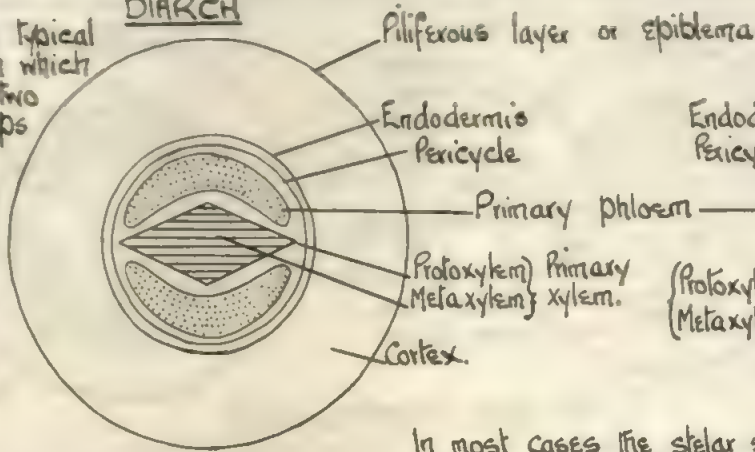 DIARCH
typical
which
two
Piliferous layer or epiblema
Endodermis
Pericycle
Primary phloem
Protoxylem } Primary
Metaxylem } xylem.
Cortex.
In most cases the stelar